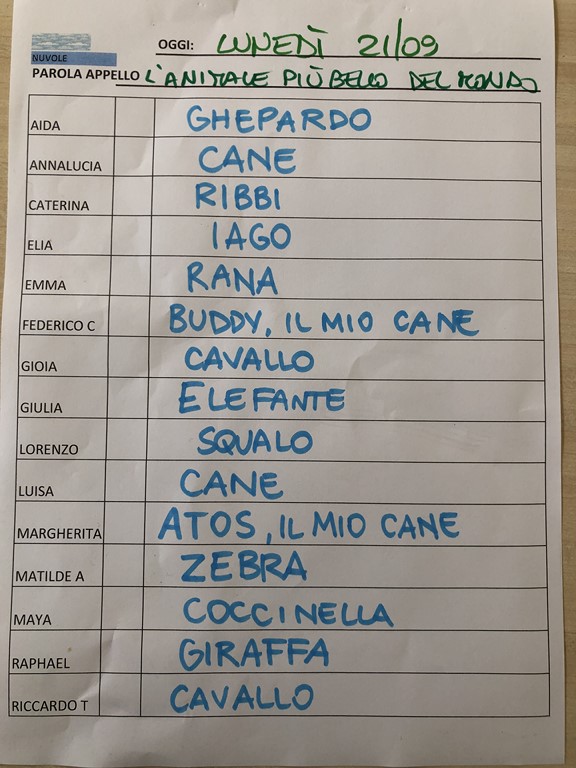 OGGI: LUNEDÌ 21/09
NUVOLE
PAROLA APPELLO L'ANIMALE PIÙ BELLO DEL MONDO
AIDA GHEPARDO
ANNALUCIA CANE
CATERINA RIBBI
ELIA IAGO
EMMA RANA
FEDERICO C BUDDY, IL MIO CANE
GIOIA CAVALLO
GIULIA ELEFANTE
LORENZO SQUALO
LUISA CANE
MARGHERITA ATOS, IL MIO CANE
MATILDE A ZEBRA
MAYA COCCINELLA
RAPHAEL GIRAFFA
RICCARDO T CAVALLO